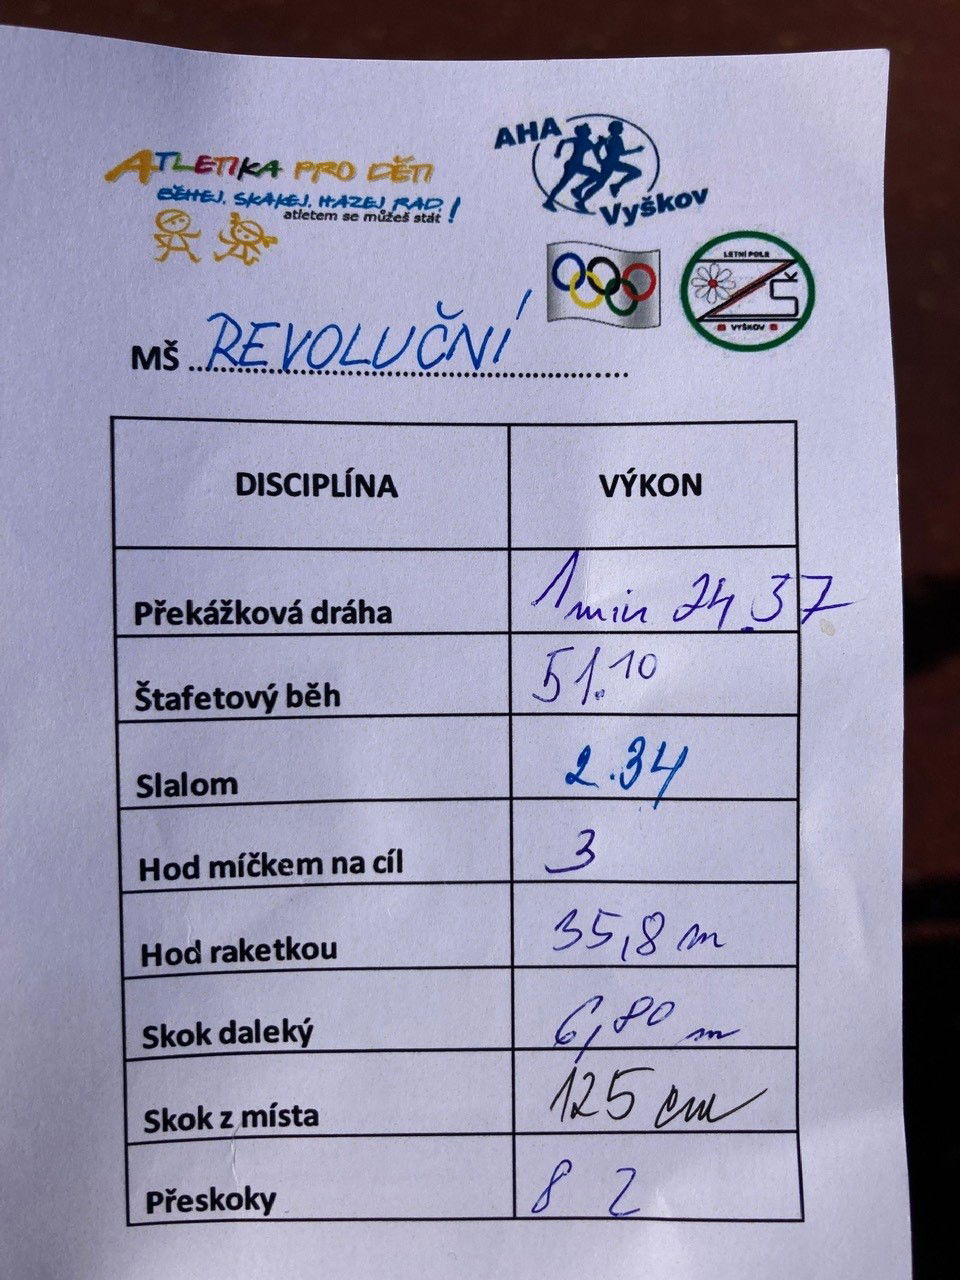 ATLETIKA PRO DĚTI
BĚHEJ, SKÁKEJ, HÁZEJ RÁD!
atletem se můžeš stát
AHA
Vyškov
LETNÍ POLE
SK
VYŠKOV
MŠ REVOLUČNÍ
DISCIPLÍNA VÝKON
Překážková dráha 1 min 24.37
Štafetový běh 51.10
Slalom 2.34
Hod míčkem na cíl 3
Hod raketkou 35,8 m
Skok daleký 6,80 m
Skok z místa 125 cm
Přeskoky 8 2